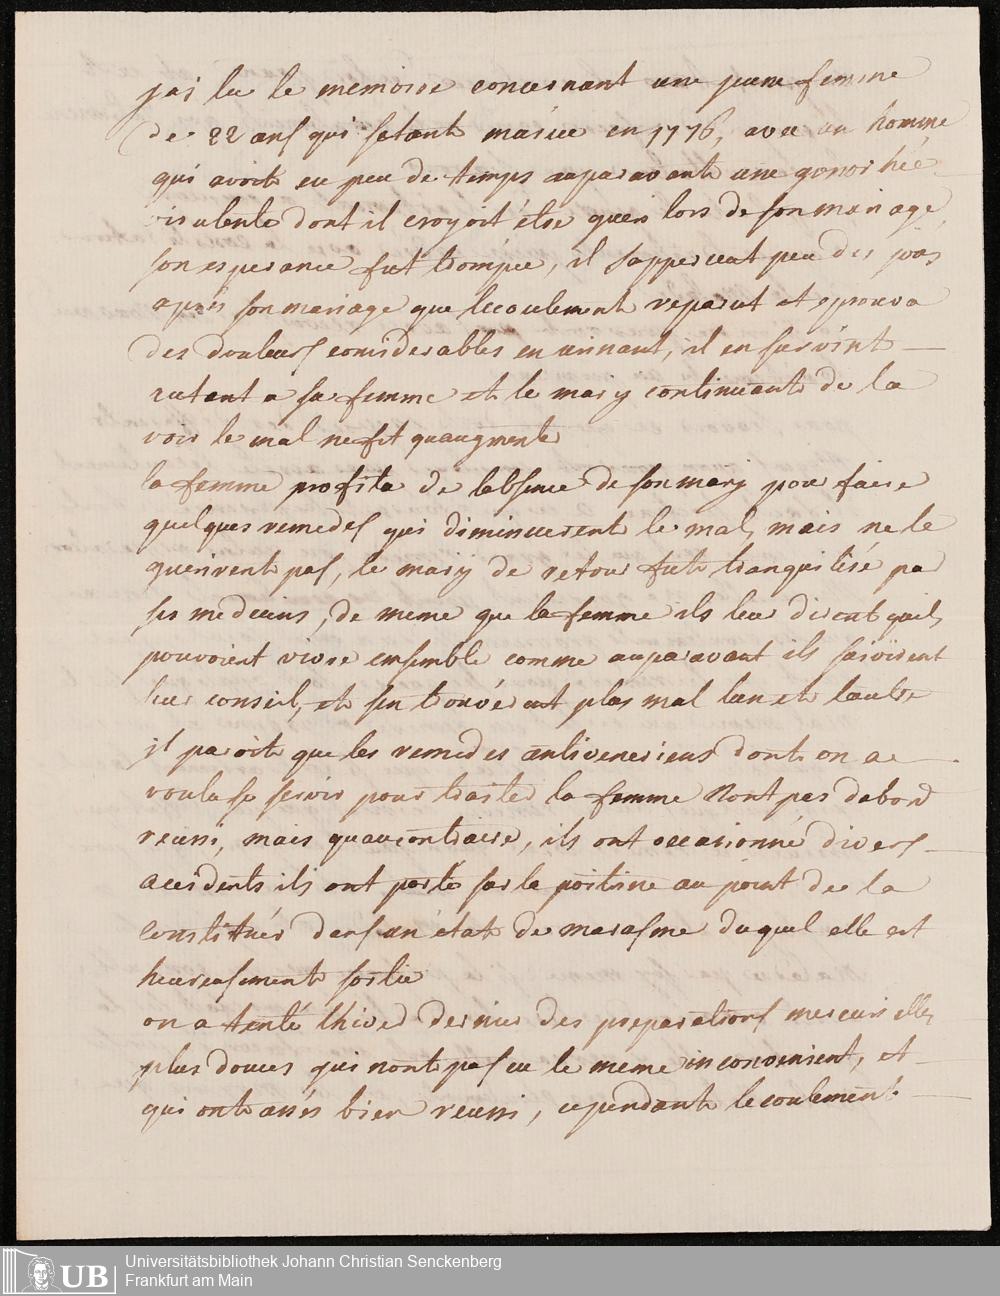 jai lu le memoire concernant une jeune femme
de 22 ans qui setant mariée en 1776, avec un homme
qui avoit eu peu de temps auparavant une gonorhée
virulente dont il croyoit être gueri lors de son mariage
son esperance fut trompée, il sappercut peu des jours
après son mariage que lecoulement reparut et eprouva
des douleurs considerables en urinant, il en survint
autant a sa femme et le mary continuant de la
voir le mal ne fit quaugmenter
la femme profita de labsence de son mary pour faire
quelques remedes qui diminuerent le mal, mais ne le
guerirent pas, le mary de retour fut tranquilisé par
ses medecins, de meme que la femme ils leur dirent quils
pouvoient vivre ensemble comme auparavant ils suivirent
leur conseil, et sen trouverent plus mal lun et lautre
il paroit que les remedes antiveneriens dont on a
voulu se servir pour traiter la femme Nont pas dabord
reussi, mais quaucontraire, ils ont occasionné divers
accidents ils ont porté sur la poitrine au point de la
constituer dans un état de marasme duquel elle est
heureusement sortie
on a tenté lhiver dernier des preparations mercurielles
plus douces qui nont pas eu le meme inconvenient, et
qui ont assés bien reussi, cependant lecoulement
Universitätsbibliothek Johann Christian Senckenberg
Frankfurt am Main
UB